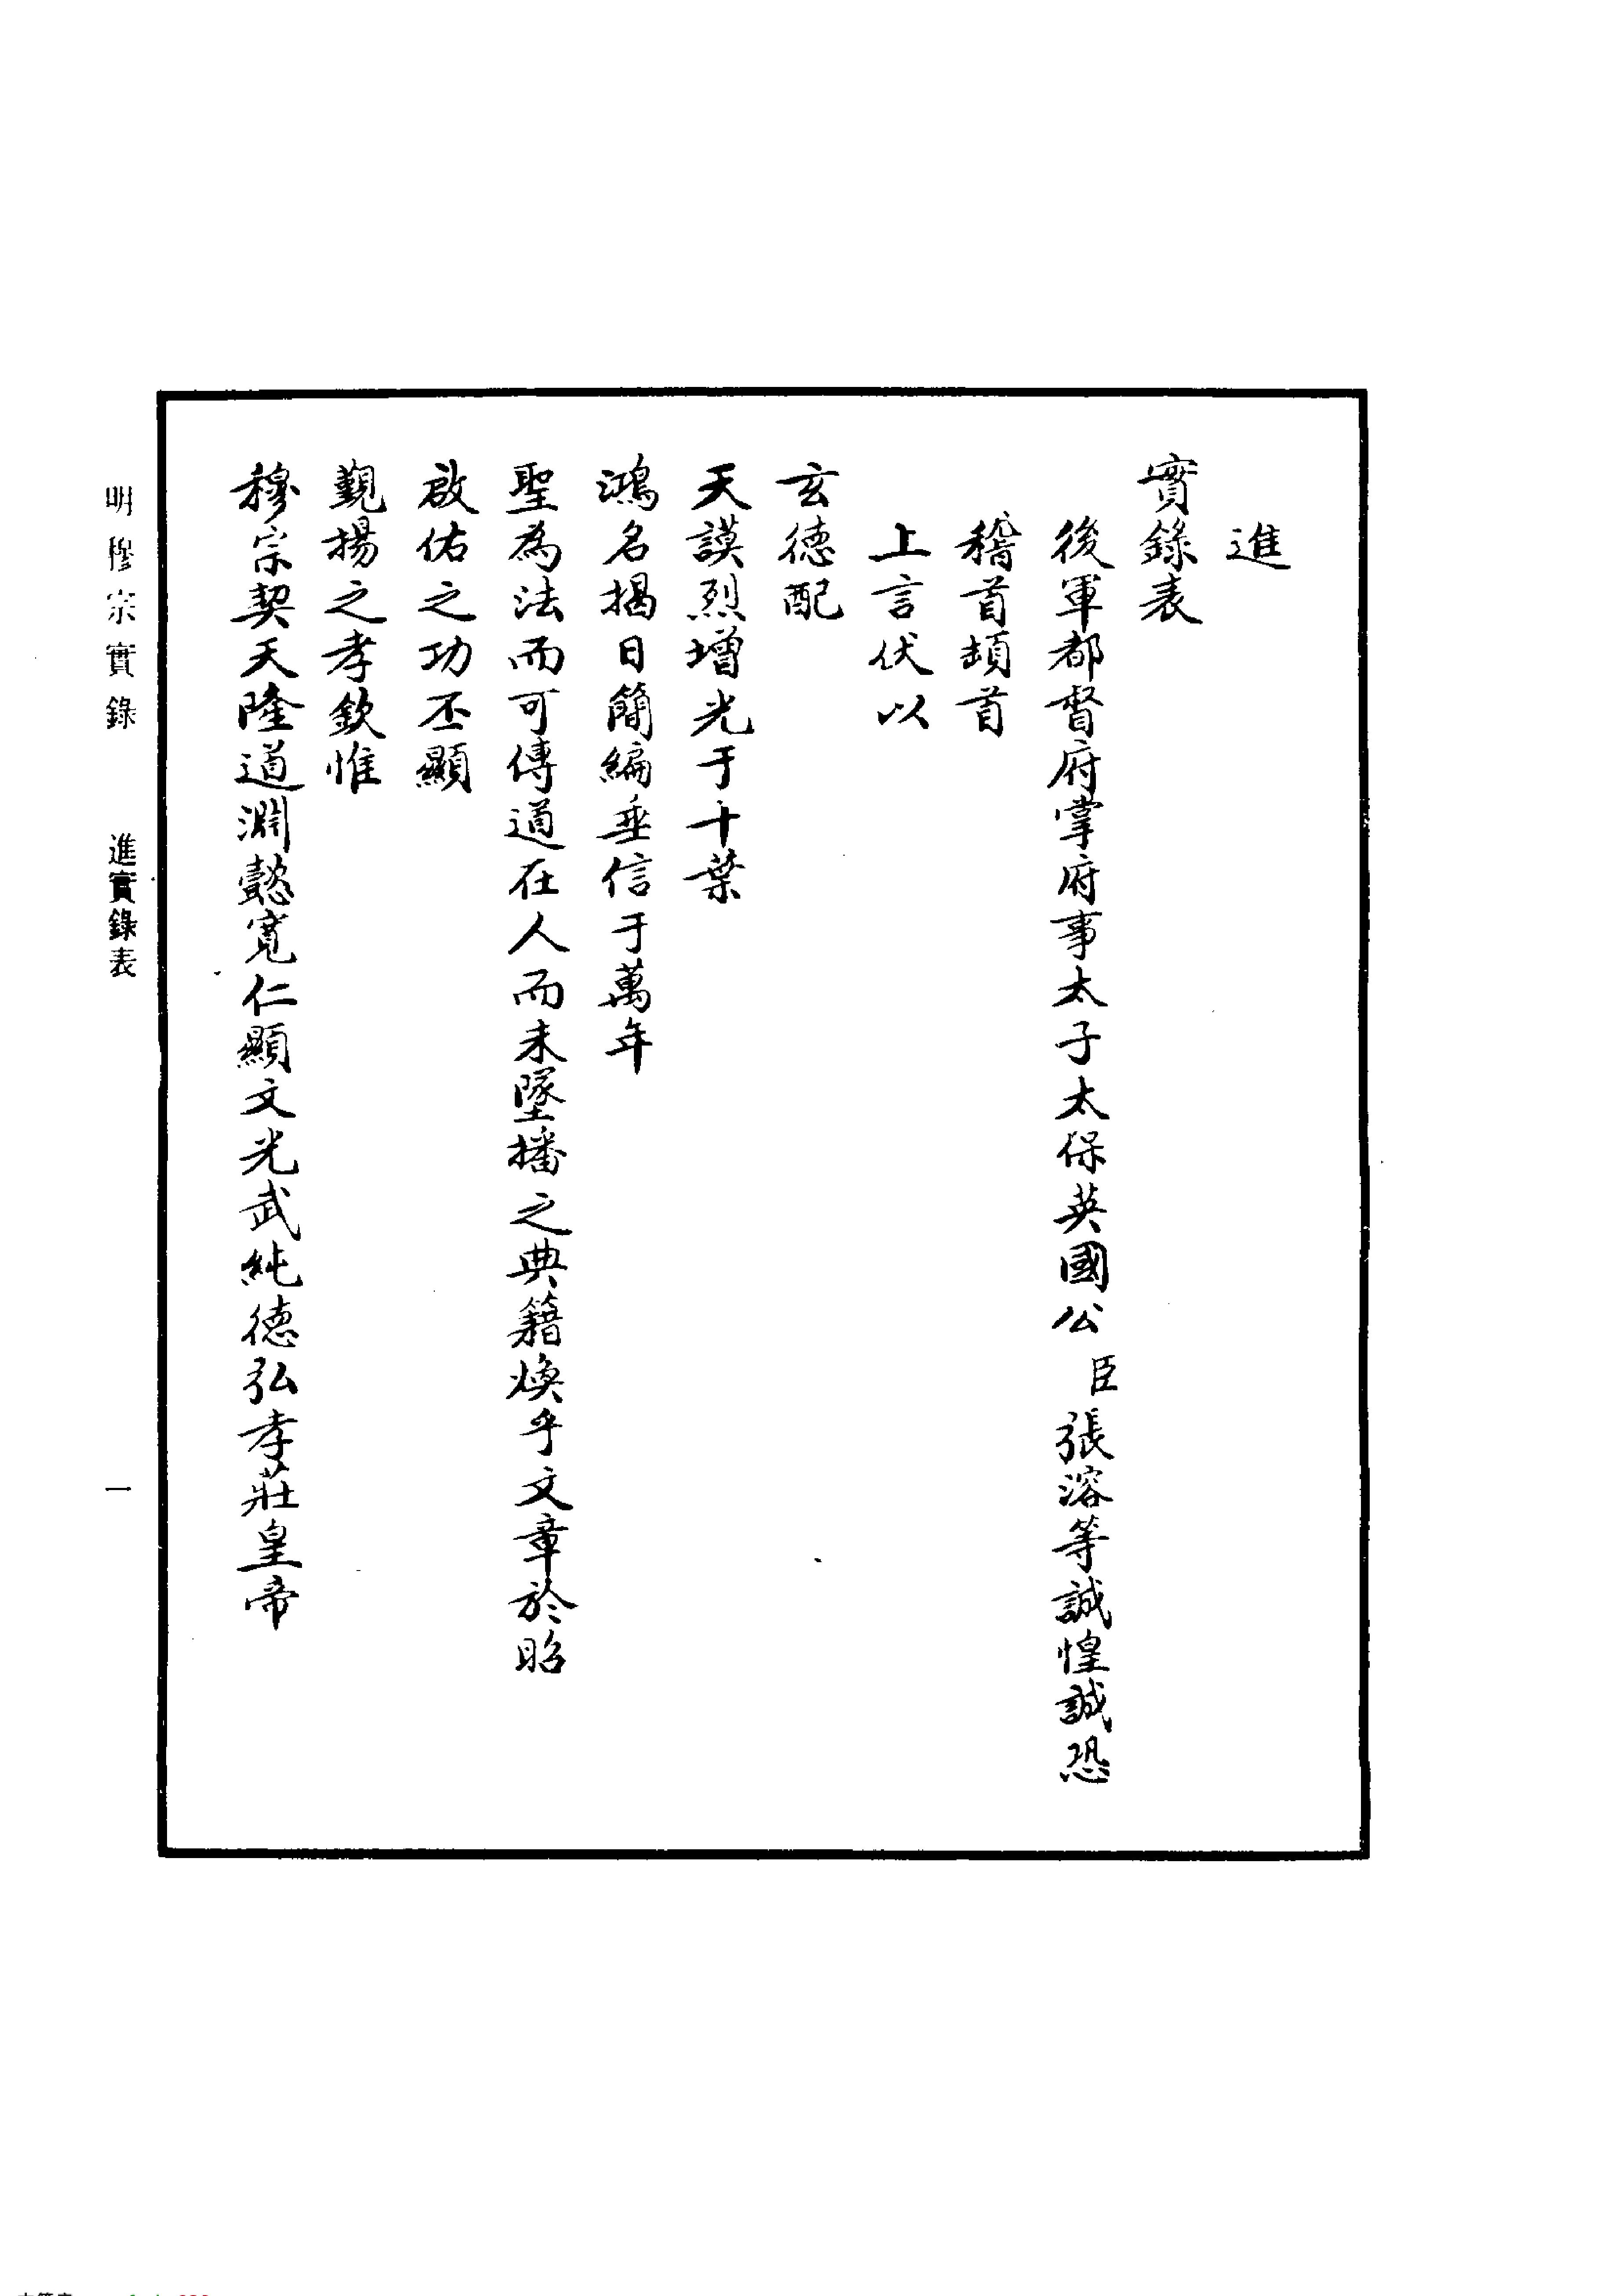 進
實錄表
後軍都督府掌府事太子太保英國公臣張溶等誠惶誠恐
稽首頓首
上言伏以
玄德配
天謨烈增光于十葉
鴻名揭日簡編垂信于萬年
聖為法而可傳道在人而未墜播之典籍煥乎文章於昭
啟佑之功丕顯
覲揚之孝欽惟
穆宗契天隆道淵懿寬仁顯文光武純德弘孝莊皇帝
明穆宗實錄 進實錄表 一